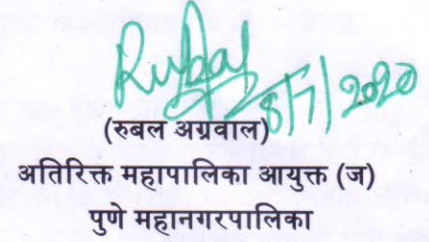 Rubal
8/7/2020
(रुबल अग्रवाल)
अतिरिक्त महापालिका आयुक्त (ज)
पुणे महानगरपालिका